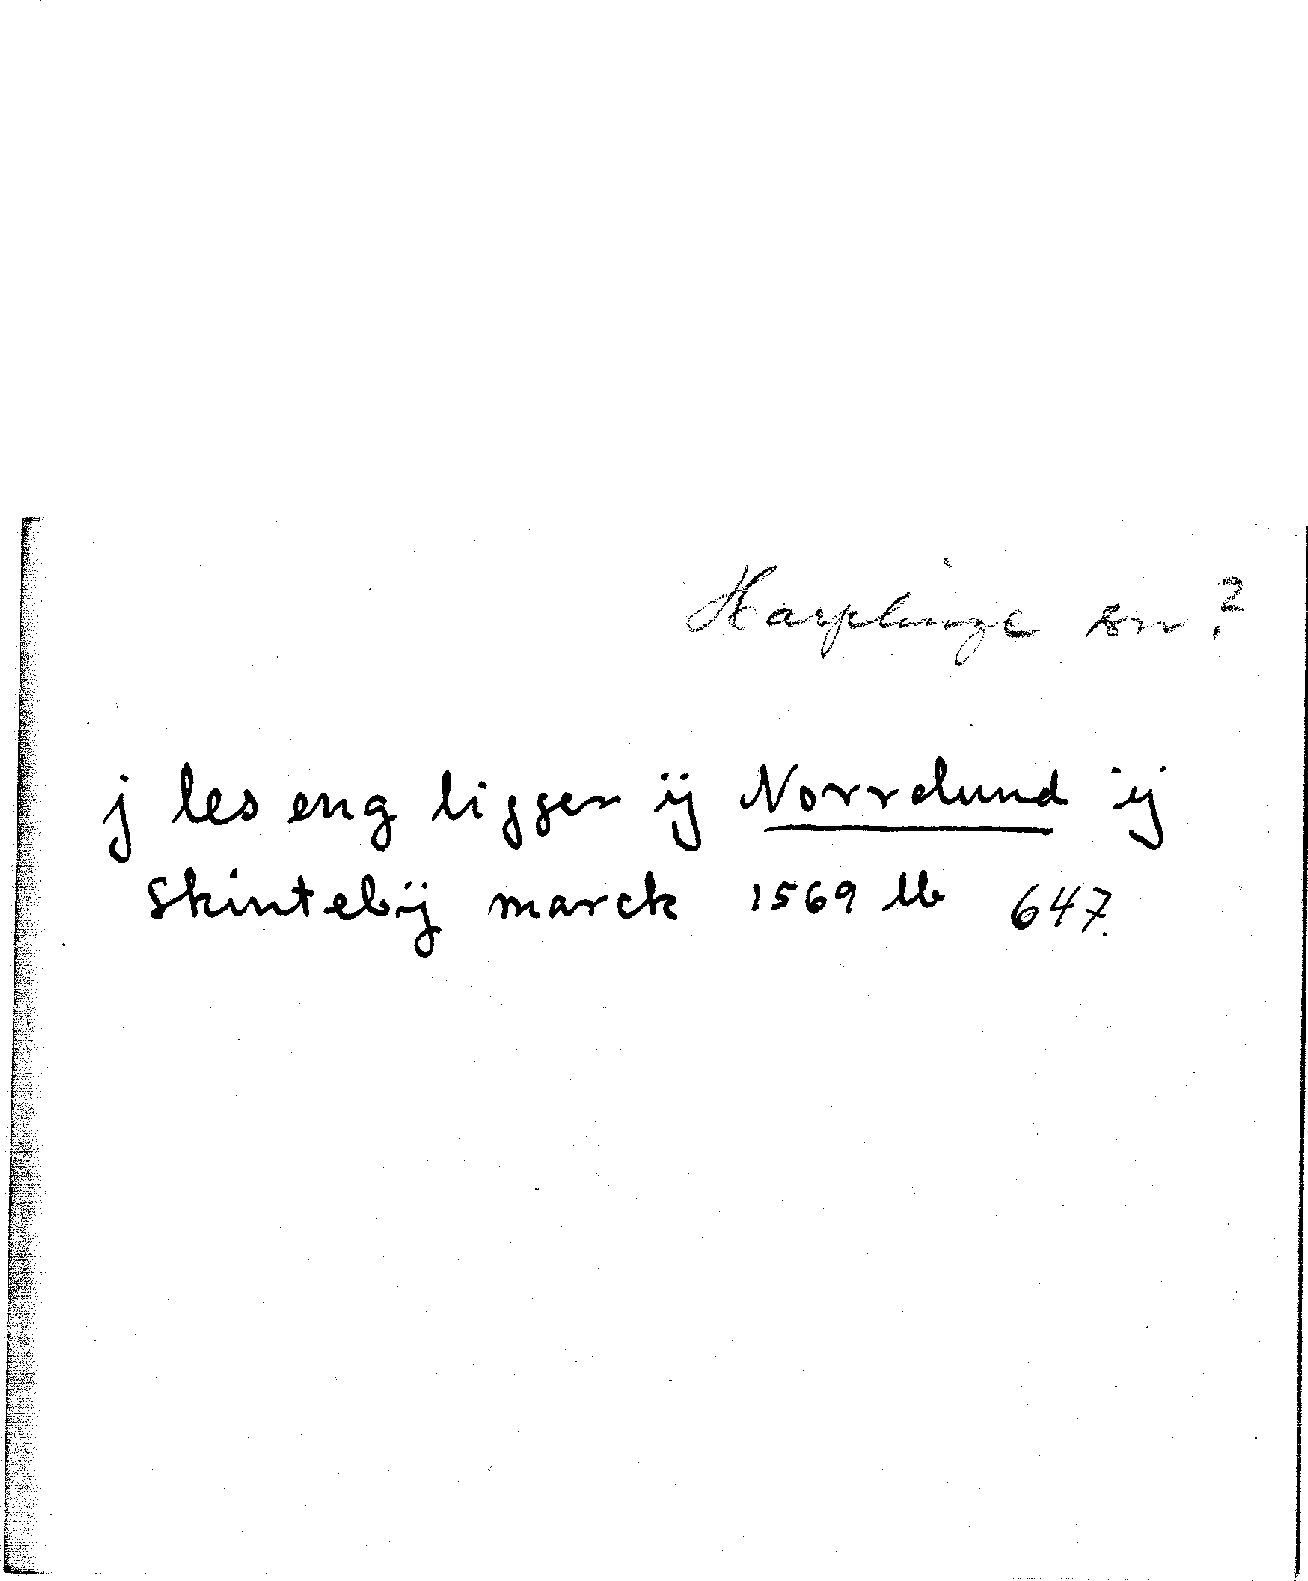 Harplinge sn.?
j les eng ligger ij Norrelund ij
Skintebÿ marck 1569 lb 647.